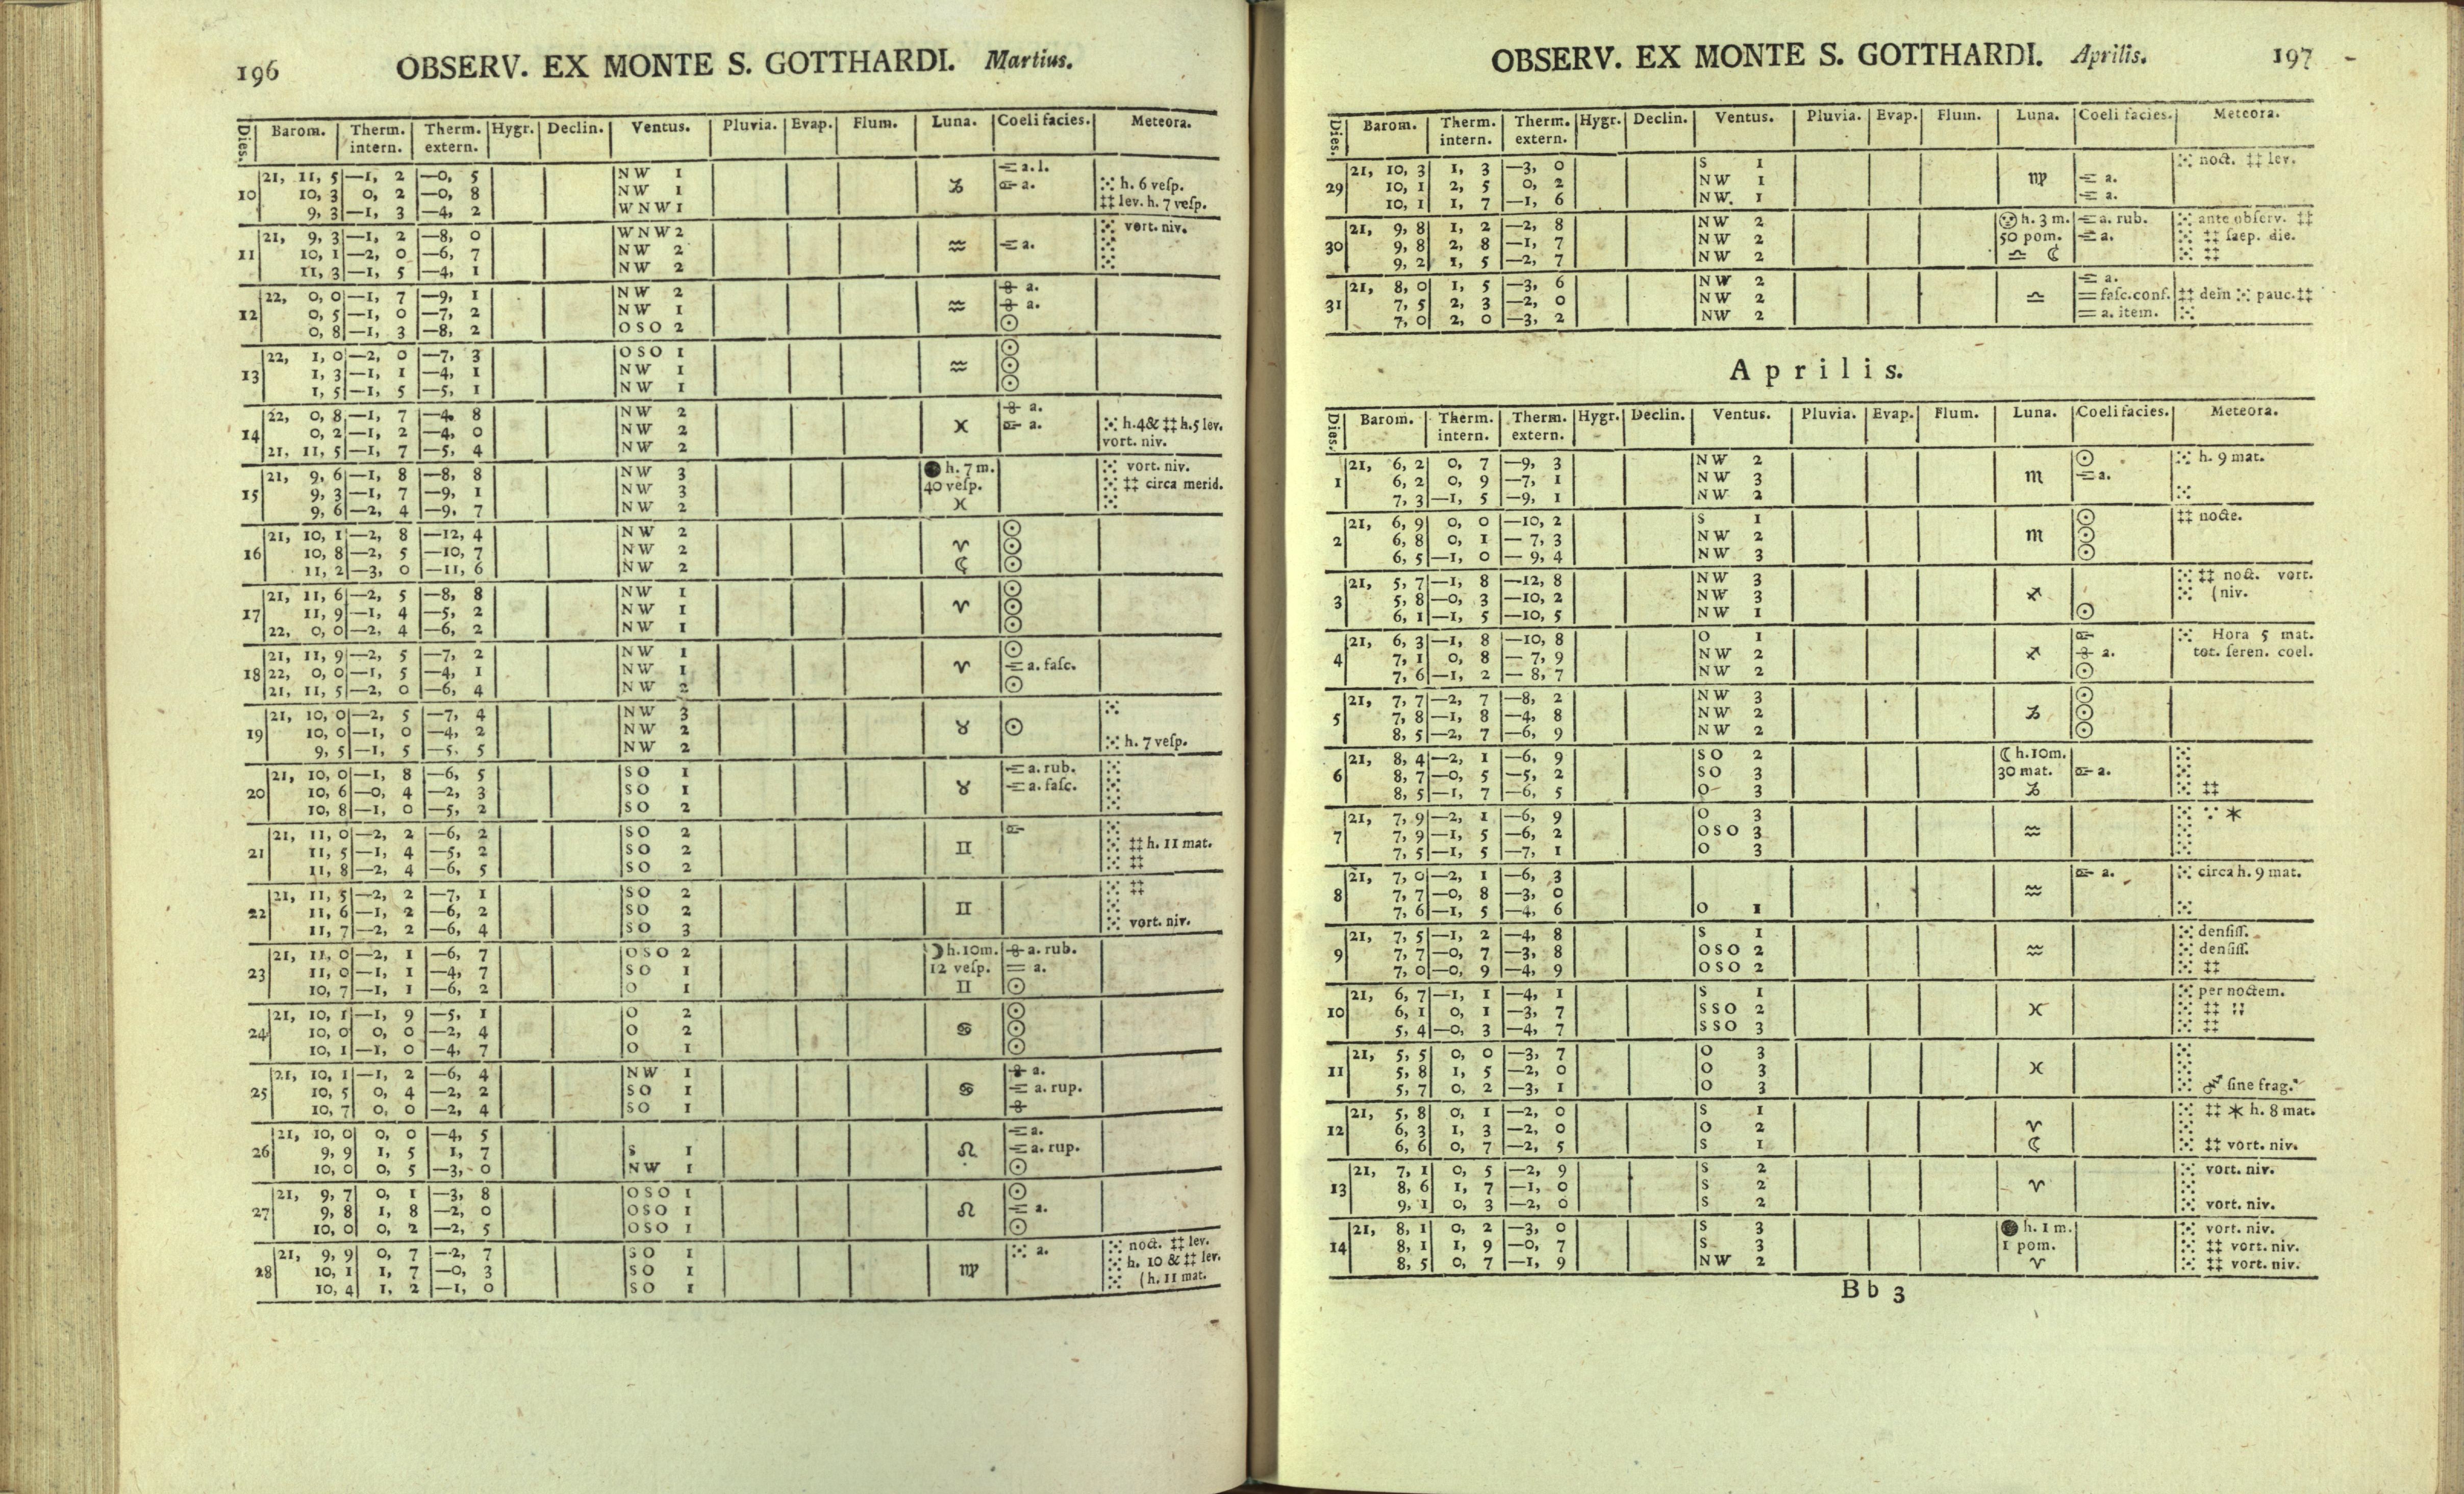 196 OBSERV. EX MONTE S. GOTTHARDI. Martius.
Dies. Barom. Therm. intern. Therm. extern. Hygr. Declin. Ventus. Pluvia. Evap. Flum. Luna. Coeli facies. Meteora.
21, 11, 5 —1, 2 —0, 5 NW 1 a.l.
10 10, 3 0, 2 —0, 8 NW 1 ♑ a. ⁙ h. 6 veſp.
9, 3 —1, 3 —4, 2 WNW 1 ‡‡ lev. h. 7 veſp.
21, 9, 3 —1, 2 —8, 0 WNW 2 ⁙ vort. niv.
11 10, 1 —2, 0 —6, 7 NW 2 ♒ a. ⁙
11, 3 —1, 5 —4, 1 NW 2 ⁙
22, 0, 0 —1, 7 —9, 1 NW 2 a.
12 0, 5 —1, 0 —7, 2 NW 1 ♒ a.
0, 8 —1, 3 —8, 2 OSO 2 ☉
22, 1, 0 —2, 0 —7, 3 OSO 1 ☉
13 1, 3 —1, 1 —4, 1 NW 1 ♒ ☉
1, 5 —1, 5 —5, 1 NW 1 ☉
22, 0, 8 —1, 7 —4, 8 NW 2 a.
14 0, 2 —1, 2 —4, 0 NW 2 ♓ a. ⁙ h.4& ‡‡ h.5 lev.
21, 11, 5 —1, 7 —5, 4 NW 2 vort. niv.
21, 9, 6 —1, 8 —8, 8 NW 3 ● h. 7 m. ⁙ vort. niv.
15 9, 3 —1, 7 —9, 1 NW 3 40 veſp. ⁙ ‡‡ circa merid.
9, 6 —2, 4 —9, 7 NW 2 ♓ ⁙
21, 10, 1 —2, 8 —12, 4 NW 2 ☉
16 10, 8 —2, 5 —10, 7 NW 2 ♈ ☉
11, 2 —3, 0 —11, 6 NW 2 ☾ ☉
21, 11, 6 —2, 5 —8, 8 NW 1 ☉
17 11, 9 —1, 4 —5, 2 NW 1 ♈ ☉
22, 0, 0 —2, 4 —6, 2 NW 1 ☉
21, 11, 9 —2, 5 —7, 2 NW 1 ☉
18 22, 0, 0 —1, 5 —4, 1 NW 1 ♈ a. faſc.
21, 11, 5 —2, 0 —6, 4 NW 2 ☉
21, 10, 0 —2, 5 —7, 4 NW 3 ⁙
19 10, 0 —1, 0 —4, 2 NW 2 ♉ ☉
9, 5 —1, 5 —5. 5 NW 2 ⁙ h. 7 veſp.
21, 10, 0 —1, 8 —6, 5 SO 1 a. rub. ⁙
20 10, 6 —0, 4 —2, 3 SO 1 ♉ a. faſc. ⁙
10, 8 —1, 0 —5, 2 SO 2 ⁙
21, 11, 0 —2, 2 —6, 2 SO 2 ⁙
21 11, 5 —1, 4 —5, 2 SO 2 ♊ ⁙ ‡‡ h. 11 mat.
11, 8 —2, 4 —6, 5 SO 2 ⁙ ‡‡
21, 11, 5 —2, 2 —7, 1 SO 2 ⁙ ‡‡
22 11, 6 —1, 2 —6, 2 SO 2 ♊ ⁙
11, 7 —2, 2 —6, 4 SO 3 ⁙ vort. niv.
21, 11, 0 —2, 1 —6, 7 OSO 2 ☽ h. 10m. a. rub.
23 11, 0 —1, 1 —4, 7 SO 1 12 veſp. = a.
10, 7 —1, 1 —6, 2 O 1 ♊ ☉
21, 10, 1 —1, 9 —5, 1 O 2 ☉
24 10, 0 0, 0 —2, 4 O 2 ♋ ☉
10, 1 —1, 0 —4, 7 O 1 ☉
21, 10, 1 —1, 2 —6, 4 NW 1 a.
25 10, 5 0, 4 —2, 2 SO 1 ♋ a. rup.
10, 7 0, 0 —2, 4 SO 1
21, 10, 0 0, 0 —4, 5 a.
26 9, 9 1, 5 1, 7 S 1 ♌ a. rup.
10, 0 0, 5 —3, 0 NW 1 ☉
21, 9, 7 0, 1 —3, 8 OSO 1 ☉
27 9, 8 1, 8 —2, 0 OSO 1 ♌ a.
10, 0 0, 2 —2, 5 OSO 1 ☉
21, 9, 9 0, 7 —2, 7 SO 1 ⁙ a. ⁙ noct. ‡‡ lev.
28 10, 1 1, 7 —0, 3 SO 1 ♍ ⁙ h. 10 & ‡‡ lev.
10, 4 1, 2 —1, 0 SO 1 ⁙ (h. 11 mat.
OBSERV. EX MONTE S. GOTTHARDI. Aprilis. 197
Dies. Barom. Therm. intern. Therm. extern. Hygr. Declin. Ventus. Pluvia. Evap. Flum. Luna. Coeli facies. Meteora.
21, 10, 3 1, 3 —3, 0 S 1 ⁙ noct. ‡‡ lev.
29 10, 1 2, 5 0, 2 NW 1 ♍ a.
10, 1 1, 7 —1, 6 NW. 1 a.
21, 9, 8 1, 2 —2, 8 NW 2 h. 3 m. a. rub. ⁙ ante obſerv. ‡‡
30 9, 8 2, 8 —1, 7 NW 2 50 pom. a. ⁙ ‡‡ ſaep. die.
9, 2 1, 5 —2, 7 NW 2 ♎ ☾ ⁙ ‡‡
21, 8, 0 1, 5 —3, 6 NW 2 a.
31 7, 5 2, 3 —2, 0 NW 2 ♎ = faſc.conf. ‡‡ dein ⁙ pauc. ‡‡
7, 0 2, 0 —3, 2 NW 2 = a. item. ⁙
Aprilis.
Dies. Barom. Therm. intern. Therm. extern. Hygr. Declin. Ventus. Pluvia. Evap. Flum. Luna. Coeli facies. Meteora.
21, 6, 2 0, 7 —9, 3 NW 2 ☉ ⁙ h. 9 mat.
1 6, 2 0, 9 —7, 1 NW 3 ♏ a.
7, 3 —1, 5 —9, 1 NW 2 ⁙
21, 6, 9 0, 0 —10, 2 S 1 ☉ ‡‡ nocte.
2 6, 8 0, 1 — 7, 3 NW 2 ♏ ☉
6, 5 —1, 0 — 9, 4 NW 3 ☉
21, 5, 7 —1, 8 —12, 8 NW 3 ⁙ ‡‡ noct. vort.
3 5, 8 —0, 3 —10, 2 NW 3 ♐ ⁙ (niv.
6, 1 —1, 5 —10, 5 NW 1 ☉
21, 6, 3 —1, 8 —10, 8 O 1 ⁙ Hora 5 mat.
4 7, 1 0, 8 — 7, 9 NW 2 ♐ a. tot. ſeren. coel.
7, 6 —1, 2 — 8, 7 NW 2 ☉
21, 7, 7 —2, 7 —8, 2 NW 3 ☉
5 7, 8 —1, 8 —4, 8 NW 2 ♑ ☉
8, 5 —2, 7 —6, 9 NW 2 ☉
21, 8, 4 —2, 1 —6, 9 SO 2 ☾ h. 10m. ⁙
6 8, 7 —0, 5 —5, 2 SO 3 30 mat. a. ⁙
8, 5 —1, 7 —6, 5 O 3 ♑ ⁙ ‡‡
21, 7, 9 —2, 1 —6, 9 O 3 ⁙ ∵ *
7 7, 9 —1, 5 —6, 2 OSO 3 ♒ ⁙
7, 5 —1, 5 —7, 1 O 3 ⁙
21, 7, 0 —2, 1 —6, 3 a. ⁙ circa h. 9 mat.
8 7, 7 —0, 8 —3, 0 ♒
7, 6 —1, 5 —4, 6 O 1 ⁙
21, 7, 5 —1, 2 —4, 8 S 1 ⁙ denſiſſ.
9 7, 7 —0, 7 —3, 8 OSO 2 ♒ ⁙ denſiſſ.
7, 0 —0, 9 —4, 9 OSO 2 ⁙ ‡‡
21, 6, 7 —1, 1 —4, 1 S 1 ⁙ per noctem.
10 6, 1 0, 1 —3, 7 SSO 2 ♓ ⁙ ‡‡ ∷
5, 4 —0, 3 —4, 7 SSO 3 ⁙ ‡‡
21, 5, 5 0, 0 —3, 7 O 3 ⁙
11 5, 8 1, 5 —2, 0 O 3 ♓ ⁙
5, 7 0, 2 —3, 1 O 3 ⁙ ſine frag.
21, 5, 8 0, 1 —2, 0 S 1 ⁙ ‡‡ * h. 8 mat.
12 6, 3 1, 3 —2, 0 O 2 ♈ ⁙
6, 6 0, 7 —2, 5 S 1 ☾ ⁙ ‡‡ vort. niv.
21, 7, 1 0, 5 —2, 9 S 2 ⁙ vort. niv.
13 8, 6 1, 7 —1, 0 S 2 ♈ ⁙
9, 1 0, 3 —2, 0 S 2 ⁙ vort. niv.
21, 8, 1 0, 2 —3, 0 S 3 ● h. 1 m. ⁙ vort. niv.
14 8, 1 1, 9 —0, 7 S 3 1 pom. ⁙ ‡‡ vort. niv.
8, 5 0, 7 —1, 9 NW 2 ♈ ⁙ ‡‡ vort. niv.
Bb 3